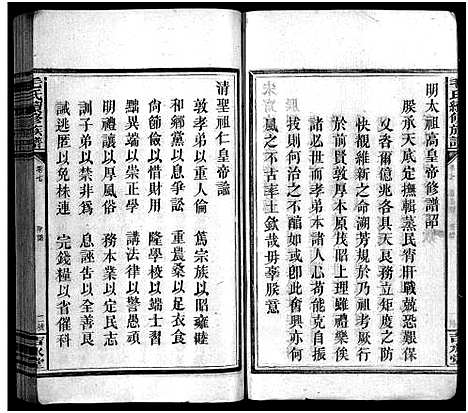 毛氏續修族譜
明太祖高皇帝修譜詔
朕承天底定撫輯蒸民胥計咸登仁壽
爻肖爾億兆各具天良務立矩度之防
快覩維新之命溯芳規於乃祖考厥行
於前賢敦孝本原茂培上理雖禮樂俟
諸百年而孝弟本諸人心苟能克自振
拔何古治之不關哉如卽此奮興亦何
之不古率土欽哉毋辜朕意
清聖祖仁皇帝諭
敦孝弟以重人倫　篤宗族以昭雍睦
和鄉黨以息爭訟　重農桑以足衣食
尙節儉以惜財用　隆學校以端士習
黜異端以崇正學　講法律以警愚頑
明禮讓以厚風俗　務本業以定民志
訓子弟以禁非爲　息誣告以全善良
誡逃匿以免株連　完錢糧以省催科
毛氏續修族譜
卷七